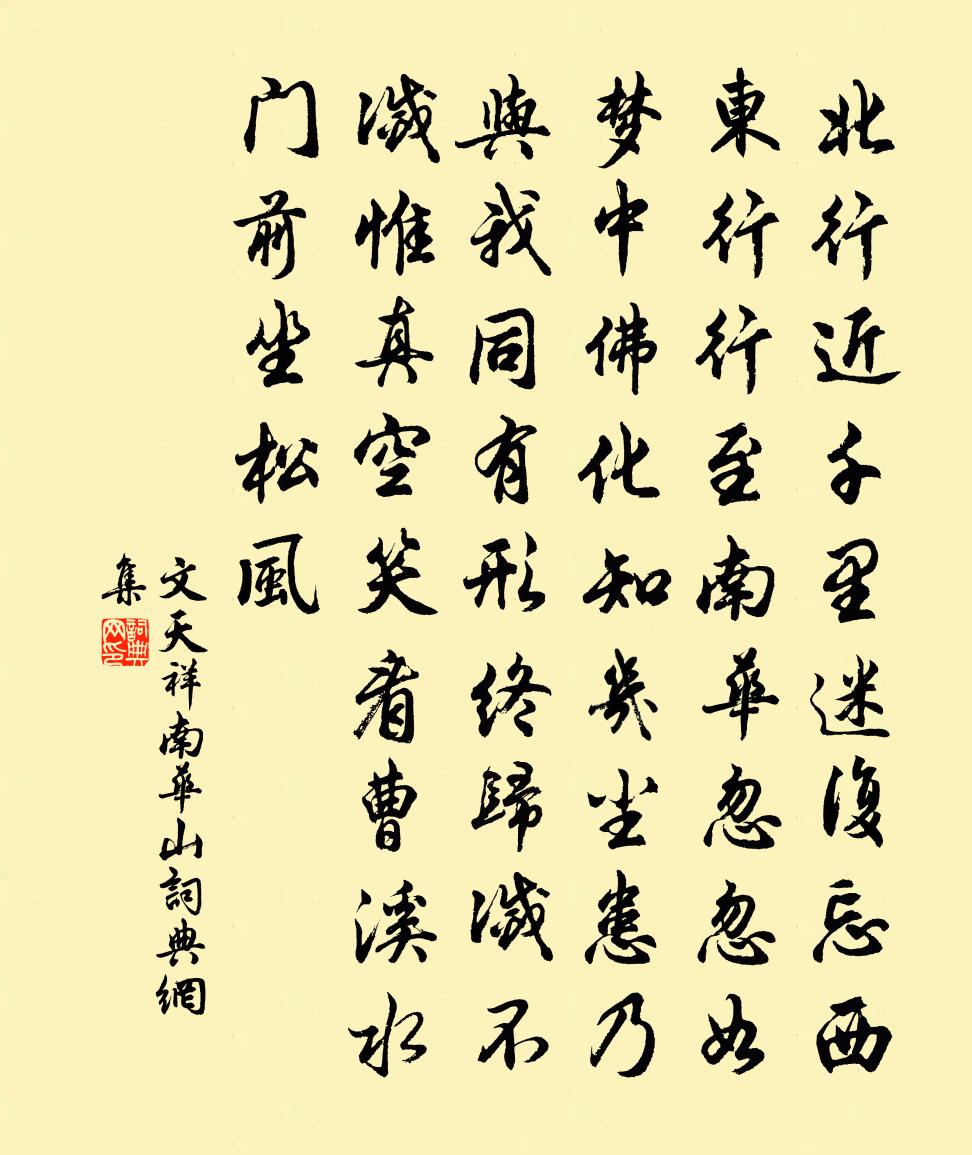 北行近千里迷復忘西
東行行至南華忽忽如
梦中佛化知幾尘患乃
與我同有形终歸滅不
滅惟真空笑看曹溪水
门前坐松風
文天祥南華山詞典網
集
詞典网印